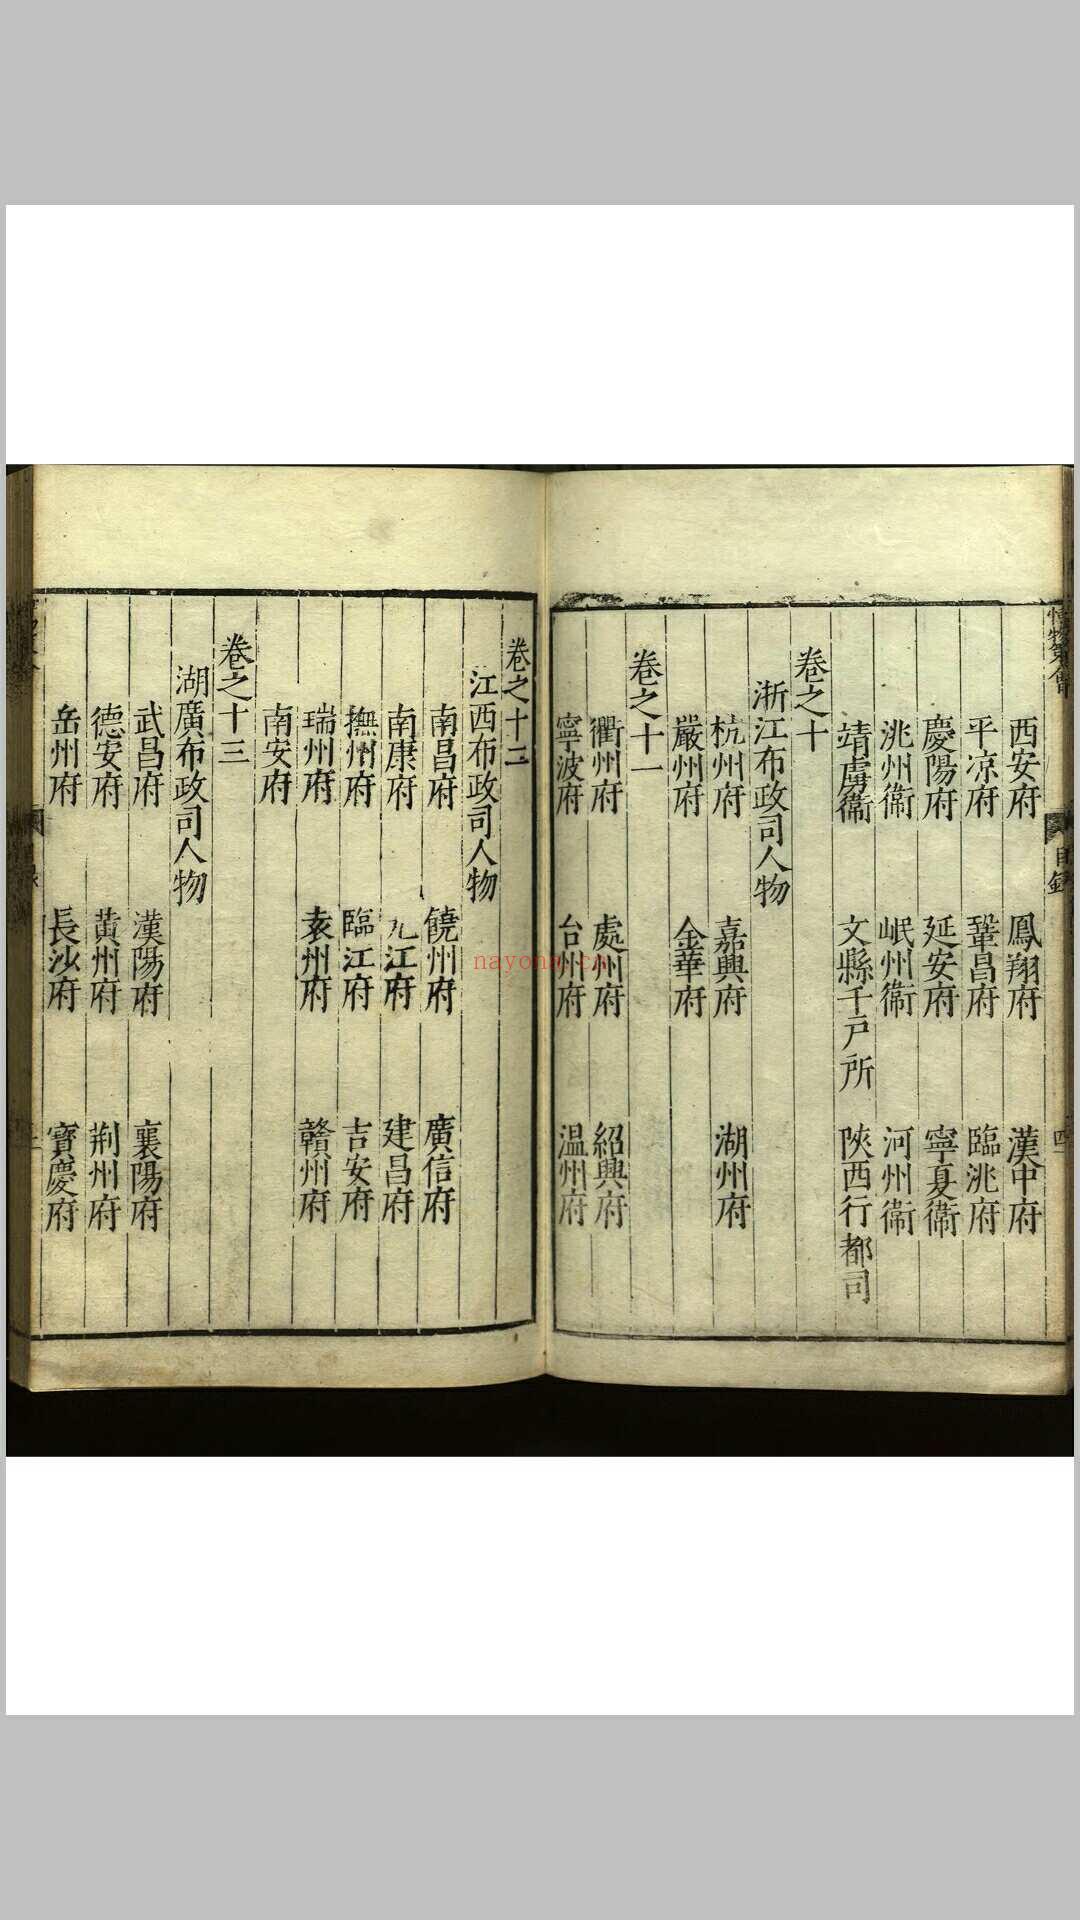 西安府 鳳翔府 漢中府
平凉府 鞏昌府 臨洮府
慶陽府 延安府 寧夏衛
洮州衛 岷州衛 河州衛
靖虜衛 文縣千戶所 陜西行都司
卷之十
浙江布政司人物
杭州府 嘉興府 湖州府
嚴州府 金華府
卷之十一
衢州府 處州府 紹興府
寧波府 台州府 温州府
卷之十二
江西布政司人物
南昌府 饒州府 廣信府
南康府 九江府 建昌府
撫州府 臨江府 吉安府
瑞州府 袁州府 贛州府
南安府
卷之十三
湖廣布政司人物
武昌府 漢陽府 襄陽府
德安府 黃州府 荆州府
岳州府 長沙府 寶慶府
目錄
四
nayona.cn